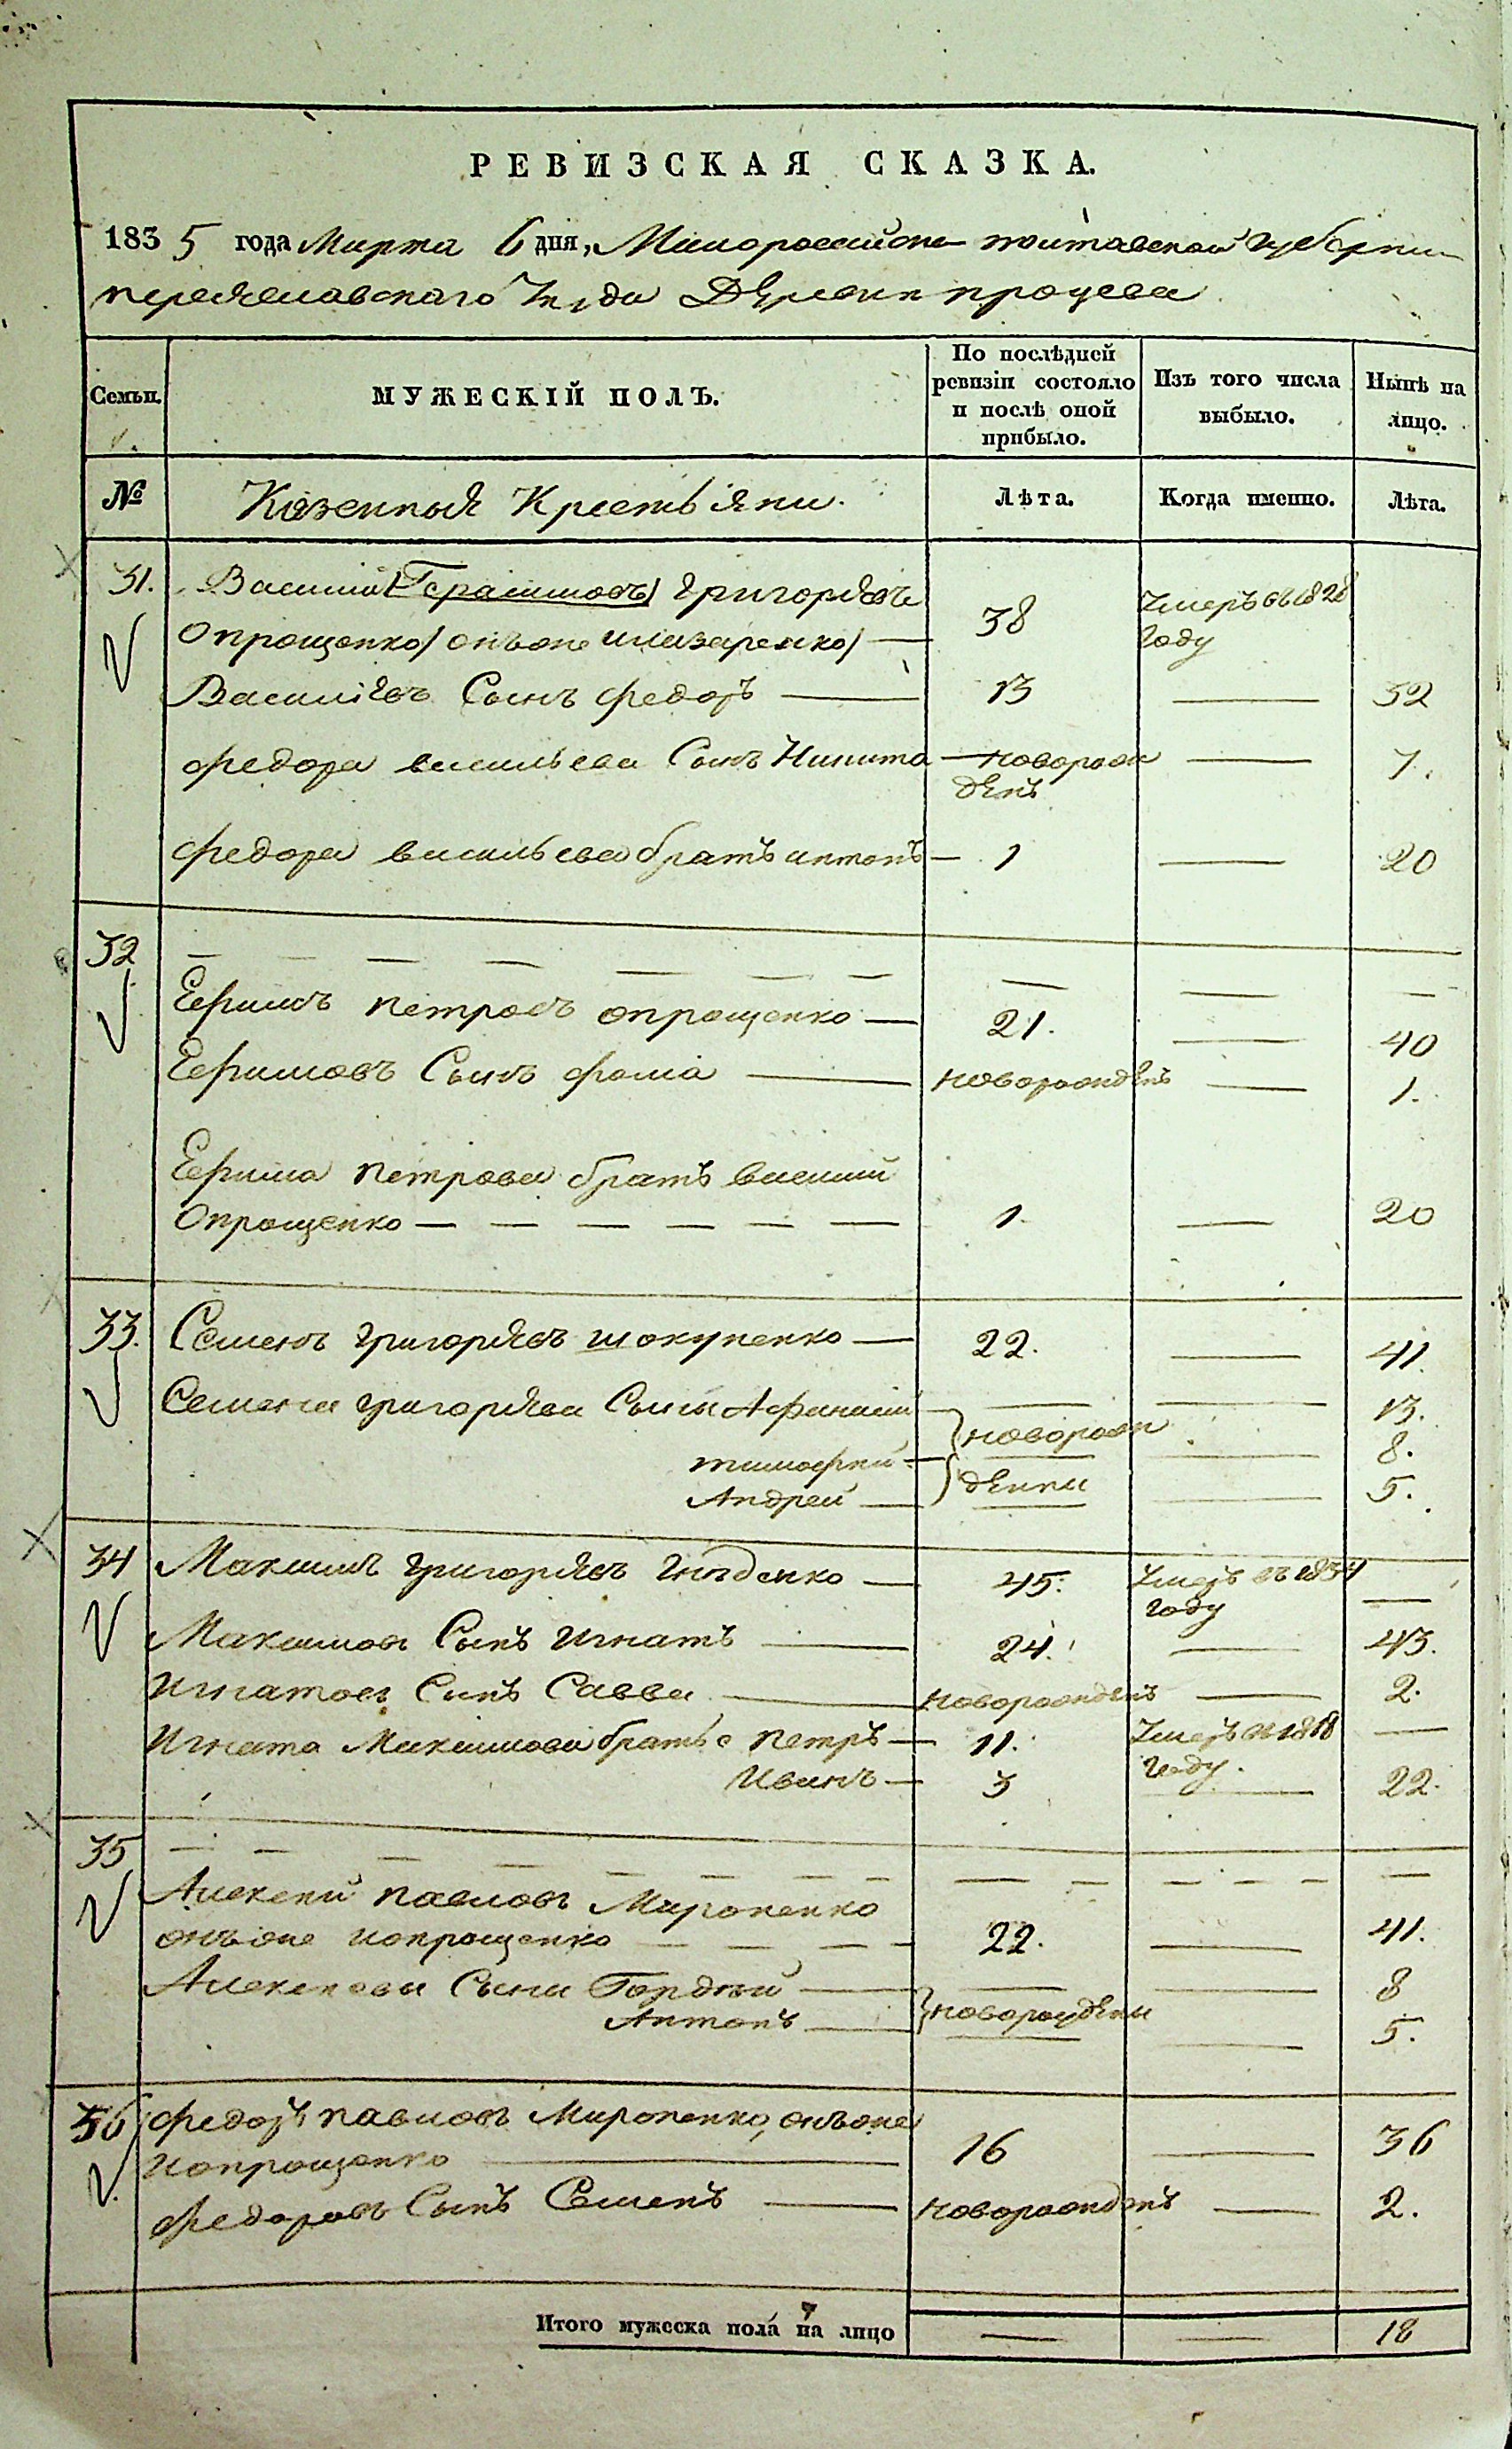 РЕВИЗСКАЯ СКАЗКА.
1835 года Марта 6 дня, Малороссийско полтавской губерни
переяславского Уезда Деревни процева
Семьи. МУЖЕСКІЙ ПОЛЪ. По послѣдней ревизіи состояло и послѣ оной прибыло. Изъ того числа выбыло. Нынѣ на лицо.
№ Казенныя Крестьяни. Лѣта. Когда именно. Лѣта.
31. Василий (Герасимовъ) григорʼевъ
Опрощенко) онъоне 38 Умеръ въ 1828 году
Василіевъ Сынъ федоръ — 13 — 32
федора васильева Сынъ Никита — новорож денъ — 7.
федора васильева братъ антонъ — 1 — 20
32 — — — — — — — — — —
Ефимъ петровъ опрощенко — 21. — 40
Ефимовъ Сынъ фома — новорожденъ — 1.
Ефима петрова братъ василий
Опрощенко — — — — — — 1. — 20
33. Семенъ григоріевъ шокупенко — 22. — 41.
Семена григоріева Сыны Афанасий — — — 13.
тимофей — новорож — 8.
Андрей — дены — 5.
34 Максимъ григоріевъ гнѣденко — 45. Умеръ въ 1834 году —
Максимовъ Сынъ игнатъ — 24. — 43.
игнатовъ Сынъ Савва — новорожденъ — 2.
игната Максимова братья петръ — 11. Умеръ въ 1818 году. —
иванъ — 3 — 22.
35 — — — — — — — — — — — — — —
Алексей павловъ Мироненко
онъоне иопрощенко — — — — 22. — 41.
Алексеева Сыны Гордѣй — — — 8
Антонъ — новорождены — 5.
36 федоръ павловъ Мироненко, онъоне
иопрощенко — 16 — 36
федоровъ Сынъ Семенъ — новорожденъ — 2.
Итого мужеска пола на лицо — — 18